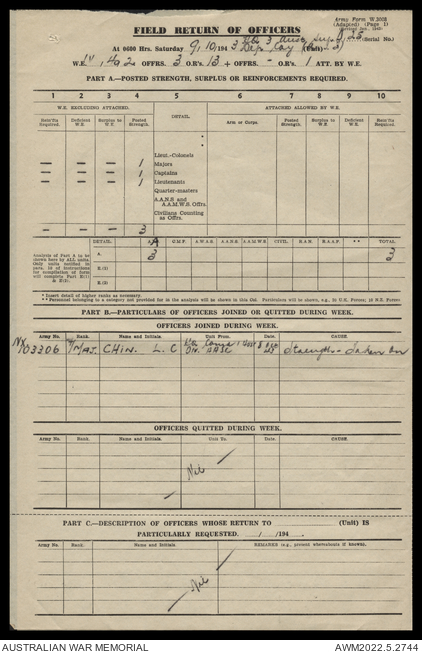 Army Form W.3008
(Adapted) (Page 1)
FIELD RETURN OF OFFICERS
(Serial No.) 23
At 0600 Hrs. Saturday 9/10/1943 (Unit)
W.E. OFFRS. 3 O.R's. 13 + OFFRS. - O.R's. 1 ATT. BY W.E.
PART A.—POSTED STRENGTH, SURPLUS OR REINFORCEMENTS REQUIRED.
1 2 3 4 5 6 7 8 9 10
W.E. EXCLUDING ATTACHED. DETAIL. ATTACHED ALLOWED BY W.E.
Reinf'ts Required. Deficient W.E. Surplus to W.E. Posted Strength. Arm or Corps. Posted Strength. Surplus to W.E. Deficient W.E. Reinf'ts Required.
Lieut.-Colonels
— — — 1 Majors
— — — 1 Captains
— — — 1 Lieutenants
Quarter-masters
A.A.N.S and A.A.M.W.S Offrs.
Civilians Counting as Offrs.
— — 3
DETAIL. A C.M.F. A.W.A.S. A.A.N.S. A.A.M.W.S. CIVIL. R.A.N. R.A.A.F. ** TOTAL
Analysis of Part A to be shown here by ALL units. Only units notified in para. 10 of instructions for compilation of form will complete Part E(1) & E(2).
A. 3 3
E.(1)
E.(2)
* Insert detail of higher ranks as necessary.
** Personnel belonging to a category not provided for in the analysis will be shown in this Col.
PART B.—PARTICULARS OF OFFICERS JOINED OR QUITTED DURING WEEK.
OFFICERS JOINED DURING WEEK.
Army No. Rank. Name and Initials. Unit From. Date. CAUSE.
NX103306 T/MAJ. CHIN. L. C AASC 43 Strength - taken on
OFFICERS QUITTED DURING WEEK.
Army No. Rank. Name and Initials. Unit To. Date. CAUSE.
Nil
PART C.—DESCRIPTION OF OFFICERS WHOSE RETURN TO (Unit) IS
PARTICULARLY REQUESTED. / /194 .
Army No. Rank. Name and Initials. REMARKS (e.g., present whereabouts if known).
Nil
AUSTRALIAN WAR MEMORIAL AWM2022.5.2744